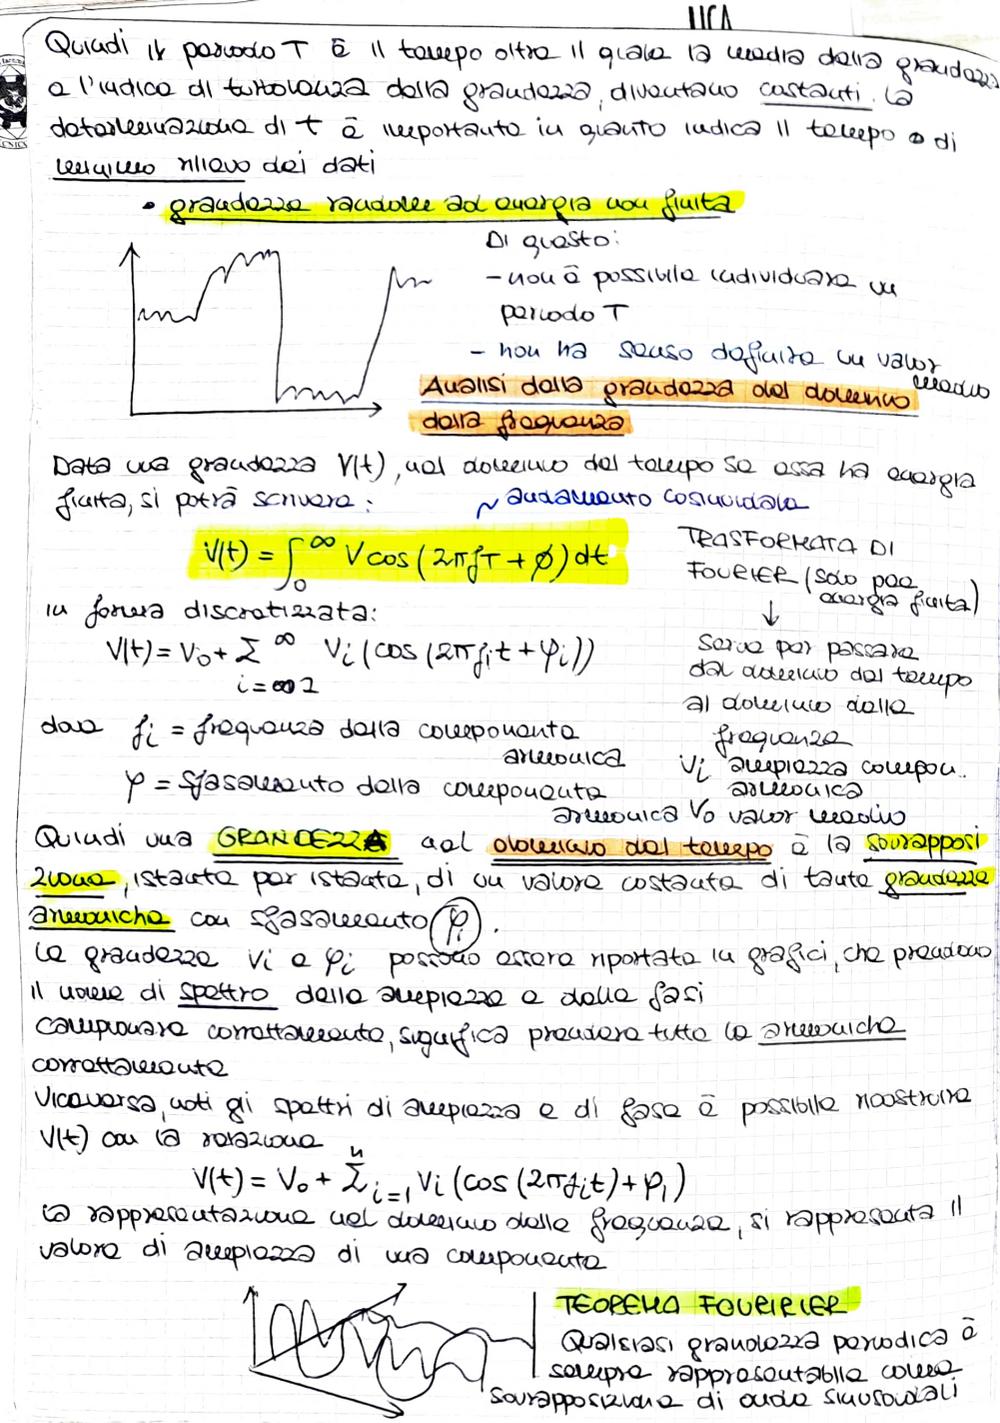 Quindi il periodo T è il tempo oltre il quale la media della grandezza
e l'indice di turbolenza della grandezza, diventano costanti. La
determinazione di t è importante in quanto indica il tempo di
minimo rilievo dei dati
• grandezze random ad energia non finita
Di questo:
- non è possibile individuare un
periodo T
- non ha senso definire un valor
medio
Analisi della grandezza del dominio
della frequenza
Data una grandezza V(t), nel dominio del tempo se essa ha energia
finita, si potrà scrivere:
~ andamento cosinoidale
V(t) = ∫₀^∞ V cos (2πfT + φ) dt
TRASFORMATA DI
FOURIER (solo per
energia finita)
↓
Serve per passare
dal dominio del tempo
al dominio della
frequenza
in forma discretizzata:
V(t) = V₀ + Σ^∞ Vi (cos (2π fi t + φi))
i = 1
dove fi = frequenza della componente
armonica
φ = sfasamento della componente
armonica
Vi ampiezza compon..
armonica
V₀ valor medio
Quindi una GRANDEZZA nel dominio del tempo è la sovrapposi
zione, istante per istante, di un valore costante di tante grandezze
armoniche con sfasamento φi.
Le grandezze Vi e φi possono essere riportate in grafici, che prendono
il nome di spettro delle ampiezze e delle fasi
Campionare correttamente, significa prendere tutte le armoniche
correttamente
Viceversa, noti gli spettri di ampiezza e di fase è possibile ricostruire
V(t) con la relazione
V(t) = V₀ + Σⁿ i=1 Vi (cos (2π fi t) + φi)
La rappresentazione nel dominio delle frequenze, si rappresenta il
valore di ampiezza di una componente
TEOREMA FOURIRIER
Qualsiasi grandezza periodica è
sempre rappresentabile come
sovrapposizione di onde sinusoidali